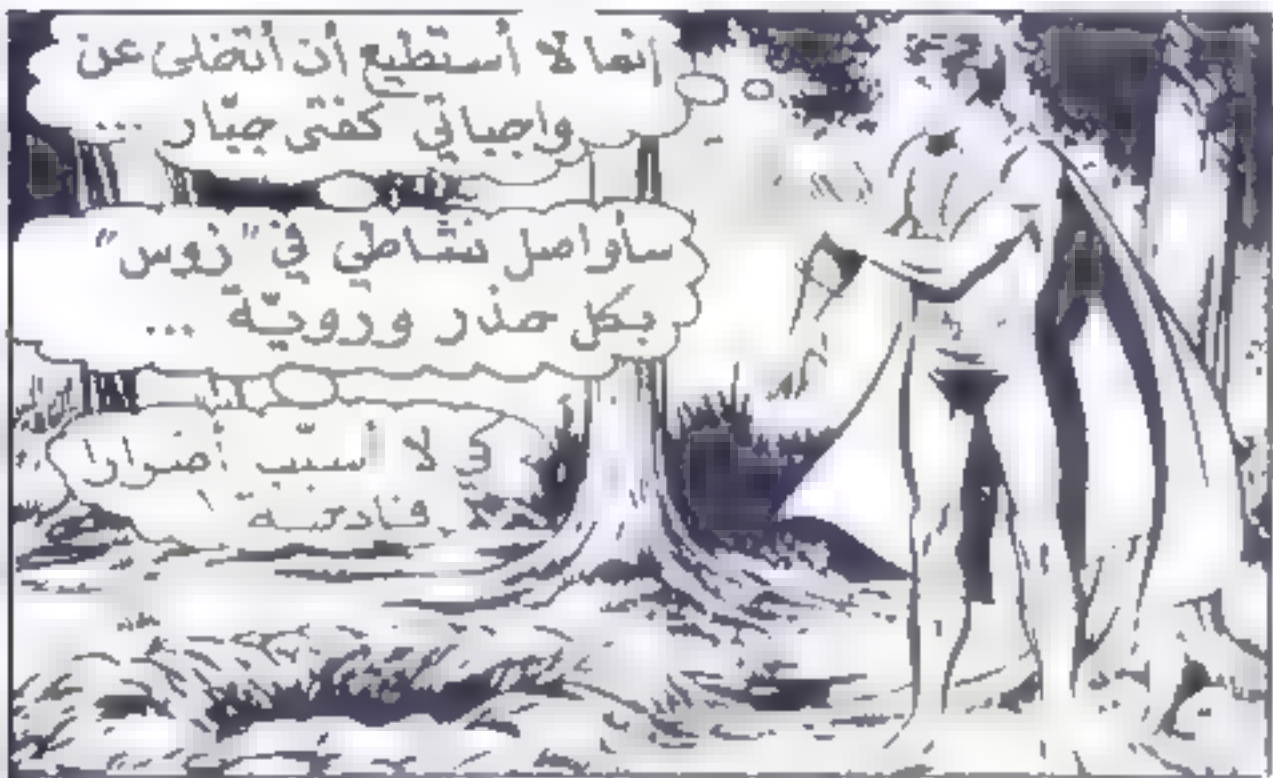 إنما لا أستطيع أن أتخلى عن
واجباتي كفتى جبّار ...
سأواصل نشاطي في "زوس"
بكل حذر ورويّة ...
كي لا أسبّب أضرارا
فادحة !